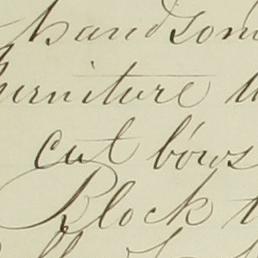 handsom
furniture
cut bows
Block t